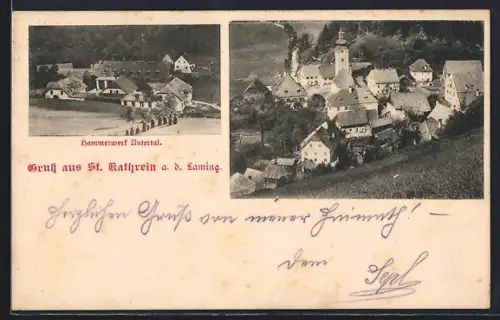 Hammerwerk Untertal.
Gruß aus St. Kathrein a. d. Laming.
Herzlichen Gruß von meiner Heimath! —
dem
Sepl